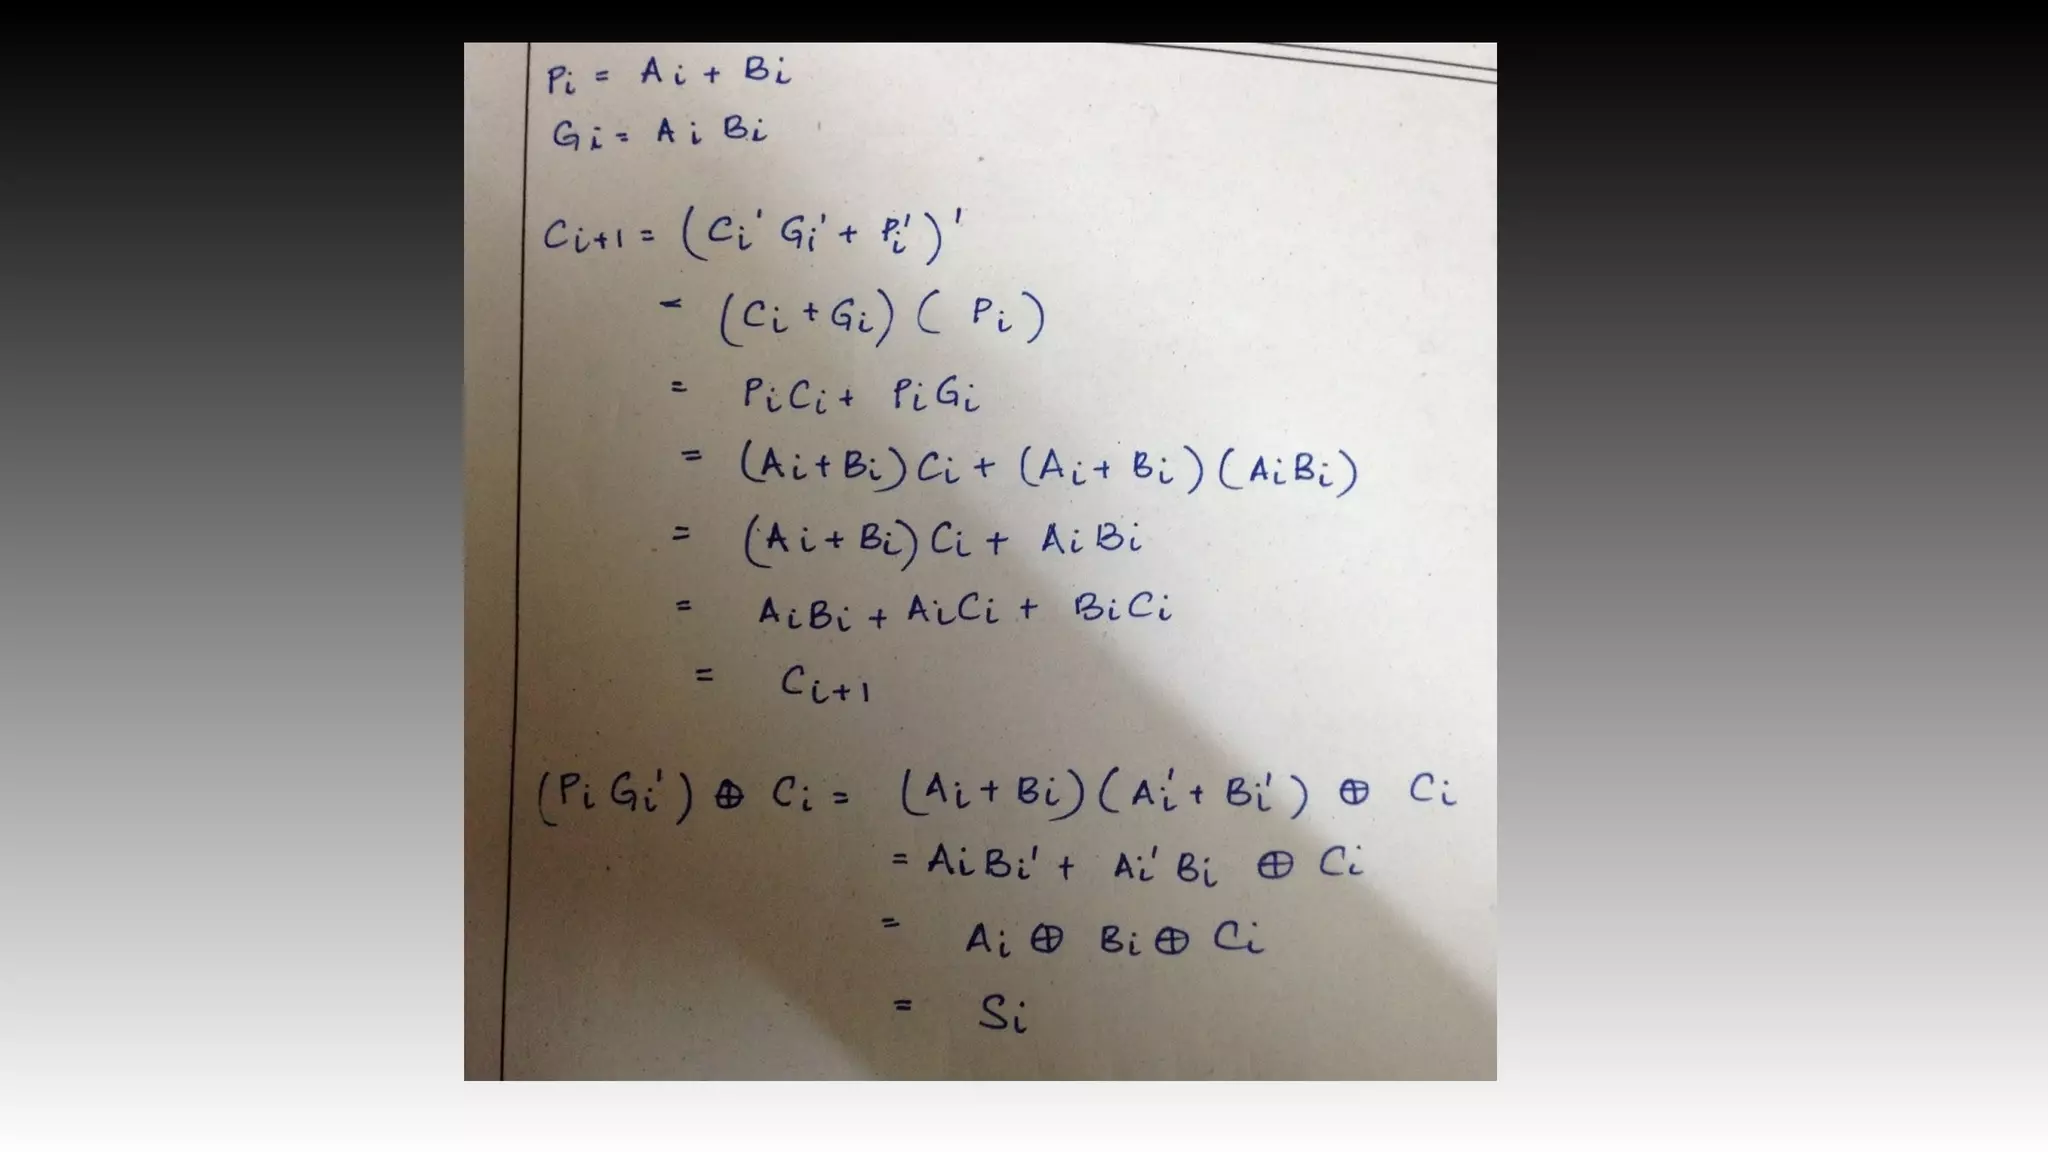 Pi = Ai + Bi
Gi = Ai Bi
Ci+1 = (Ci' Gi' + Pi')'
= (Ci + Gi) ( Pi )
= PiCi + PiGi
= (Ai + Bi) Ci + (Ai + Bi) (AiBi)
= (Ai + Bi) Ci + AiBi
= AiBi + AiCi + BiCi
= Ci+1
(Pi Gi') ⊕ Ci = (Ai + Bi) (Ai' + Bi') ⊕ Ci
= AiBi' + Ai' Bi ⊕ Ci
= Ai ⊕ Bi ⊕ Ci
= Si